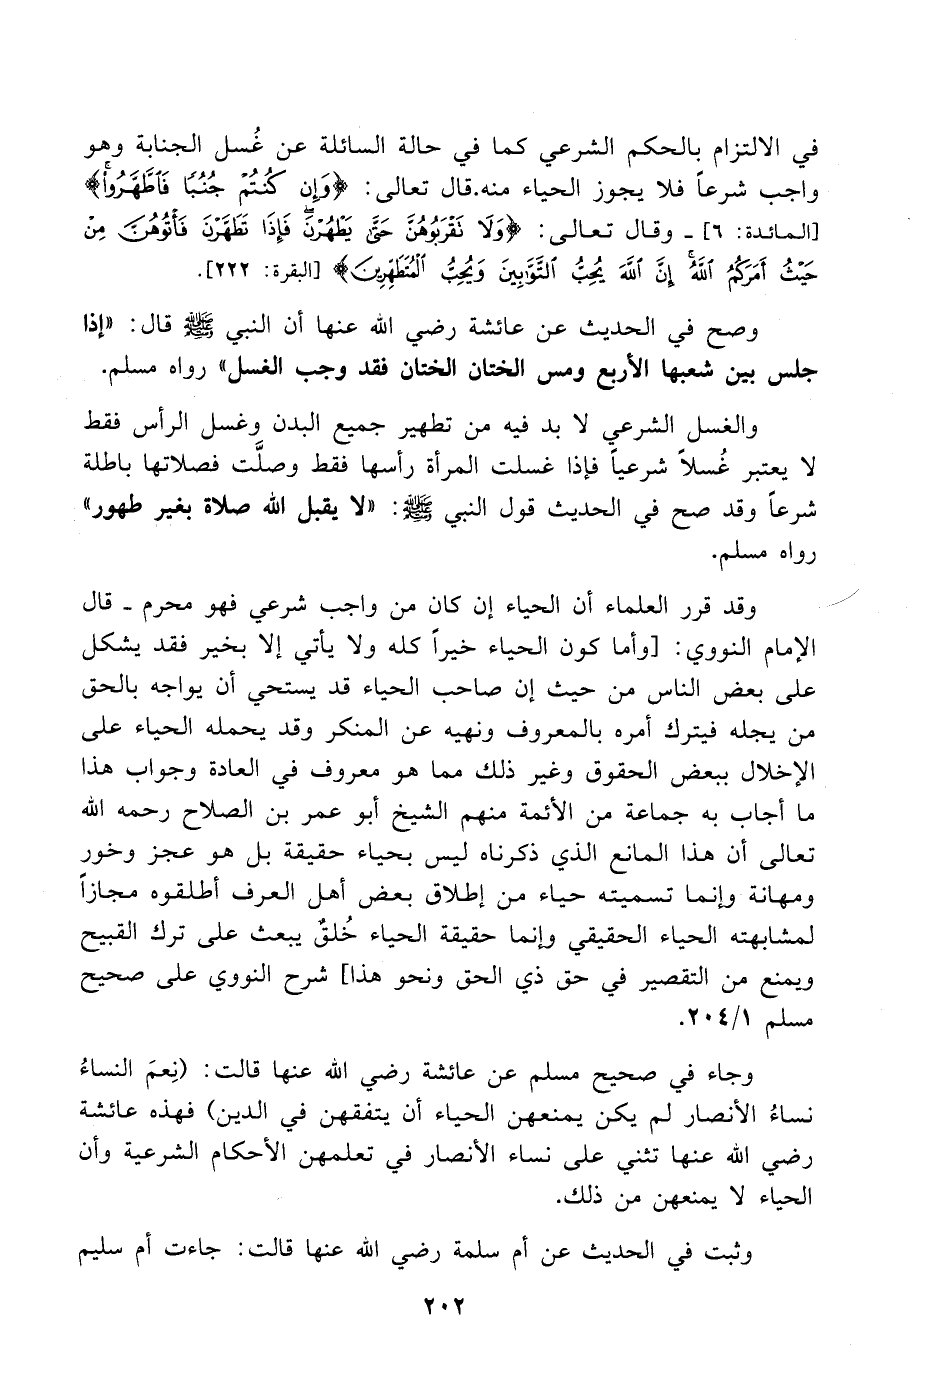 في الالتزام بالحكم الشرعي كما في حالة السائلة عن غُسل الجنابة وهو
واجب شرعاً فلا يجوز الحياء منه.قال تعالى: ﴿وَإِن كُنتُمْ جُنُبًا فَاطَّهَّرُوا﴾
[المائدة: ٦] ـ وقال تعالى: ﴿وَلَا تَقْرَبُوهُنَّ حَتَّىٰ يَطْهُرْنَ فَإِذَا تَطَهَّرْنَ فَأْتُوهُنَّ مِنْ
حَيْثُ أَمَرَكُمُ اللَّهُ إِنَّ اللَّهَ يُحِبُّ التَّوَّابِينَ وَيُحِبُّ الْمُتَطَهِّرِينَ﴾ [البقرة: ٢٢٢].
وصح في الحديث عن عائشة رضي الله عنها أن النبي ﷺ قال: «إذا
جلس بين شعبها الأربع ومس الختان الختان فقد وجب الغسل» رواه مسلم.
والغسل الشرعي لا بد فيه من تطهير جميع البدن وغسل الرأس فقط
لا يعتبر غُسلاً شرعياً فإذا غسلت المرأة رأسها فقط وصلَّت فصلاتها باطلة
شرعاً وقد صح في الحديث قول النبي ﷺ: «لا يقبل الله صلاة بغير طهور»
رواه مسلم.
وقد قرر العلماء أن الحياء إن كان من واجب شرعي فهو محرم ـ قال
الإمام النووي: [وأما كون الحياء خيراً كله ولا يأتي إلا بخير فقد يشكل
على بعض الناس من حيث إن صاحب الحياء قد يستحي أن يواجه بالحق
من يجله فيترك أمره بالمعروف ونهيه عن المنكر وقد يحمله الحياء على
الإخلال ببعض الحقوق وغير ذلك مما هو معروف في العادة وجواب هذا
ما أجاب به جماعة من الأئمة منهم الشيخ أبو عمر بن الصلاح رحمه الله
تعالى أن هذا المانع الذي ذكرناه ليس بحياء حقيقة بل هو عجز وخور
ومهانة وإنما تسميته حياء من إطلاق بعض أهل العرف أطلقوه مجازاً
لمشابهته الحياء الحقيقي وإنما حقيقة الحياء خُلقٌ يبعث على ترك القبيح
ويمنع من التقصير في حق ذي الحق ونحو هذا] شرح النووي على صحيح
مسلم ٢٠٤/١.
وجاء في صحيح مسلم عن عائشة رضي الله عنها قالت: (نِعمَ النساءُ
نساءُ الأنصار لم يكن يمنعهن الحياء أن يتفقهن في الدين) فهذه عائشة
رضي الله عنها تثني على نساء الأنصار في تعلمهن الأحكام الشرعية وأن
الحياء لا يمنعهن من ذلك.
وثبت في الحديث عن أم سلمة رضي الله عنها قالت: جاءت أم سليم
٢٠٢